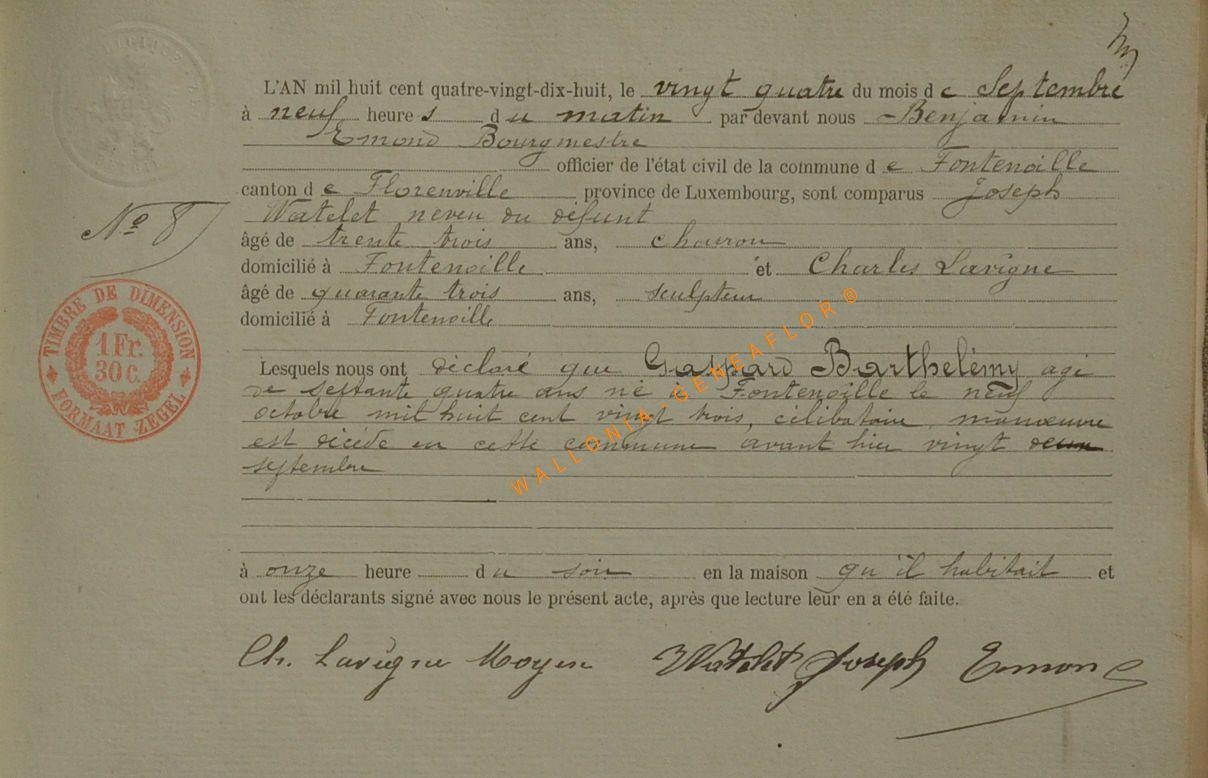 L'AN mil huit cent quatre-vingt-dix-huit, le vingt quatre du mois de Septembre
à neuf heures du matin par devant nous Benjamin
Emond Bourgmestre
officier de l'état civil de la commune de Fontenoille
canton de Florenville, province de Luxembourg, sont comparus Joseph
Watelet neveu du défunt
Nº 8
âgé de trente trois ans, charron
domicilié à Fontenoille et Charles Lavigne
âgé de quarante trois ans, sculpteur
domicilié à Fontenoille
TIMBRE DE DIMENSION
1 Fr.
30 C.
FORMAAT ZEGEL
Lesquels nous ont déclaré que Gaspard Barthelémy agé
de septante quatre ans né à Fontenoille le neuf
octobre mil huit cent vingt trois, célibataire, manœuvre
est décédé en cette commune avant hier vingt deux
septembre
WALLONIA-GENEAFLOR®
à onze heure du soir en la maison qu'il habitait et
ont les déclarants signé avec nous le présent acte, après que lecture leur en a été faite.
Ch. Lavigne Moyen Watelet Joseph Emond